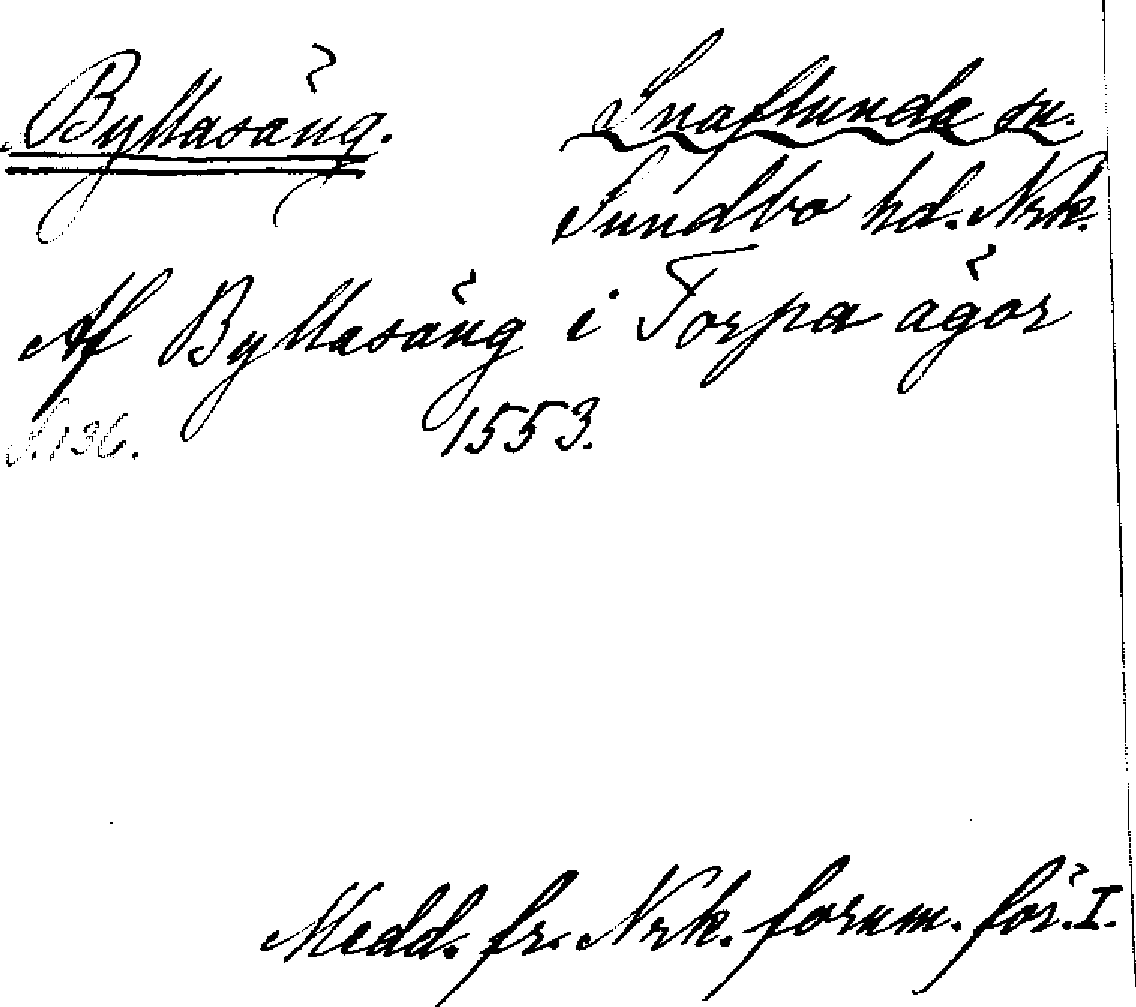 Byttasäng. Snaflunda sn.
Sundbo hd. Nrk.
Af Byttasäng i Torpa ägor
S. 136. 1553.
Medd. fr. Nrk. fornm. för. I.